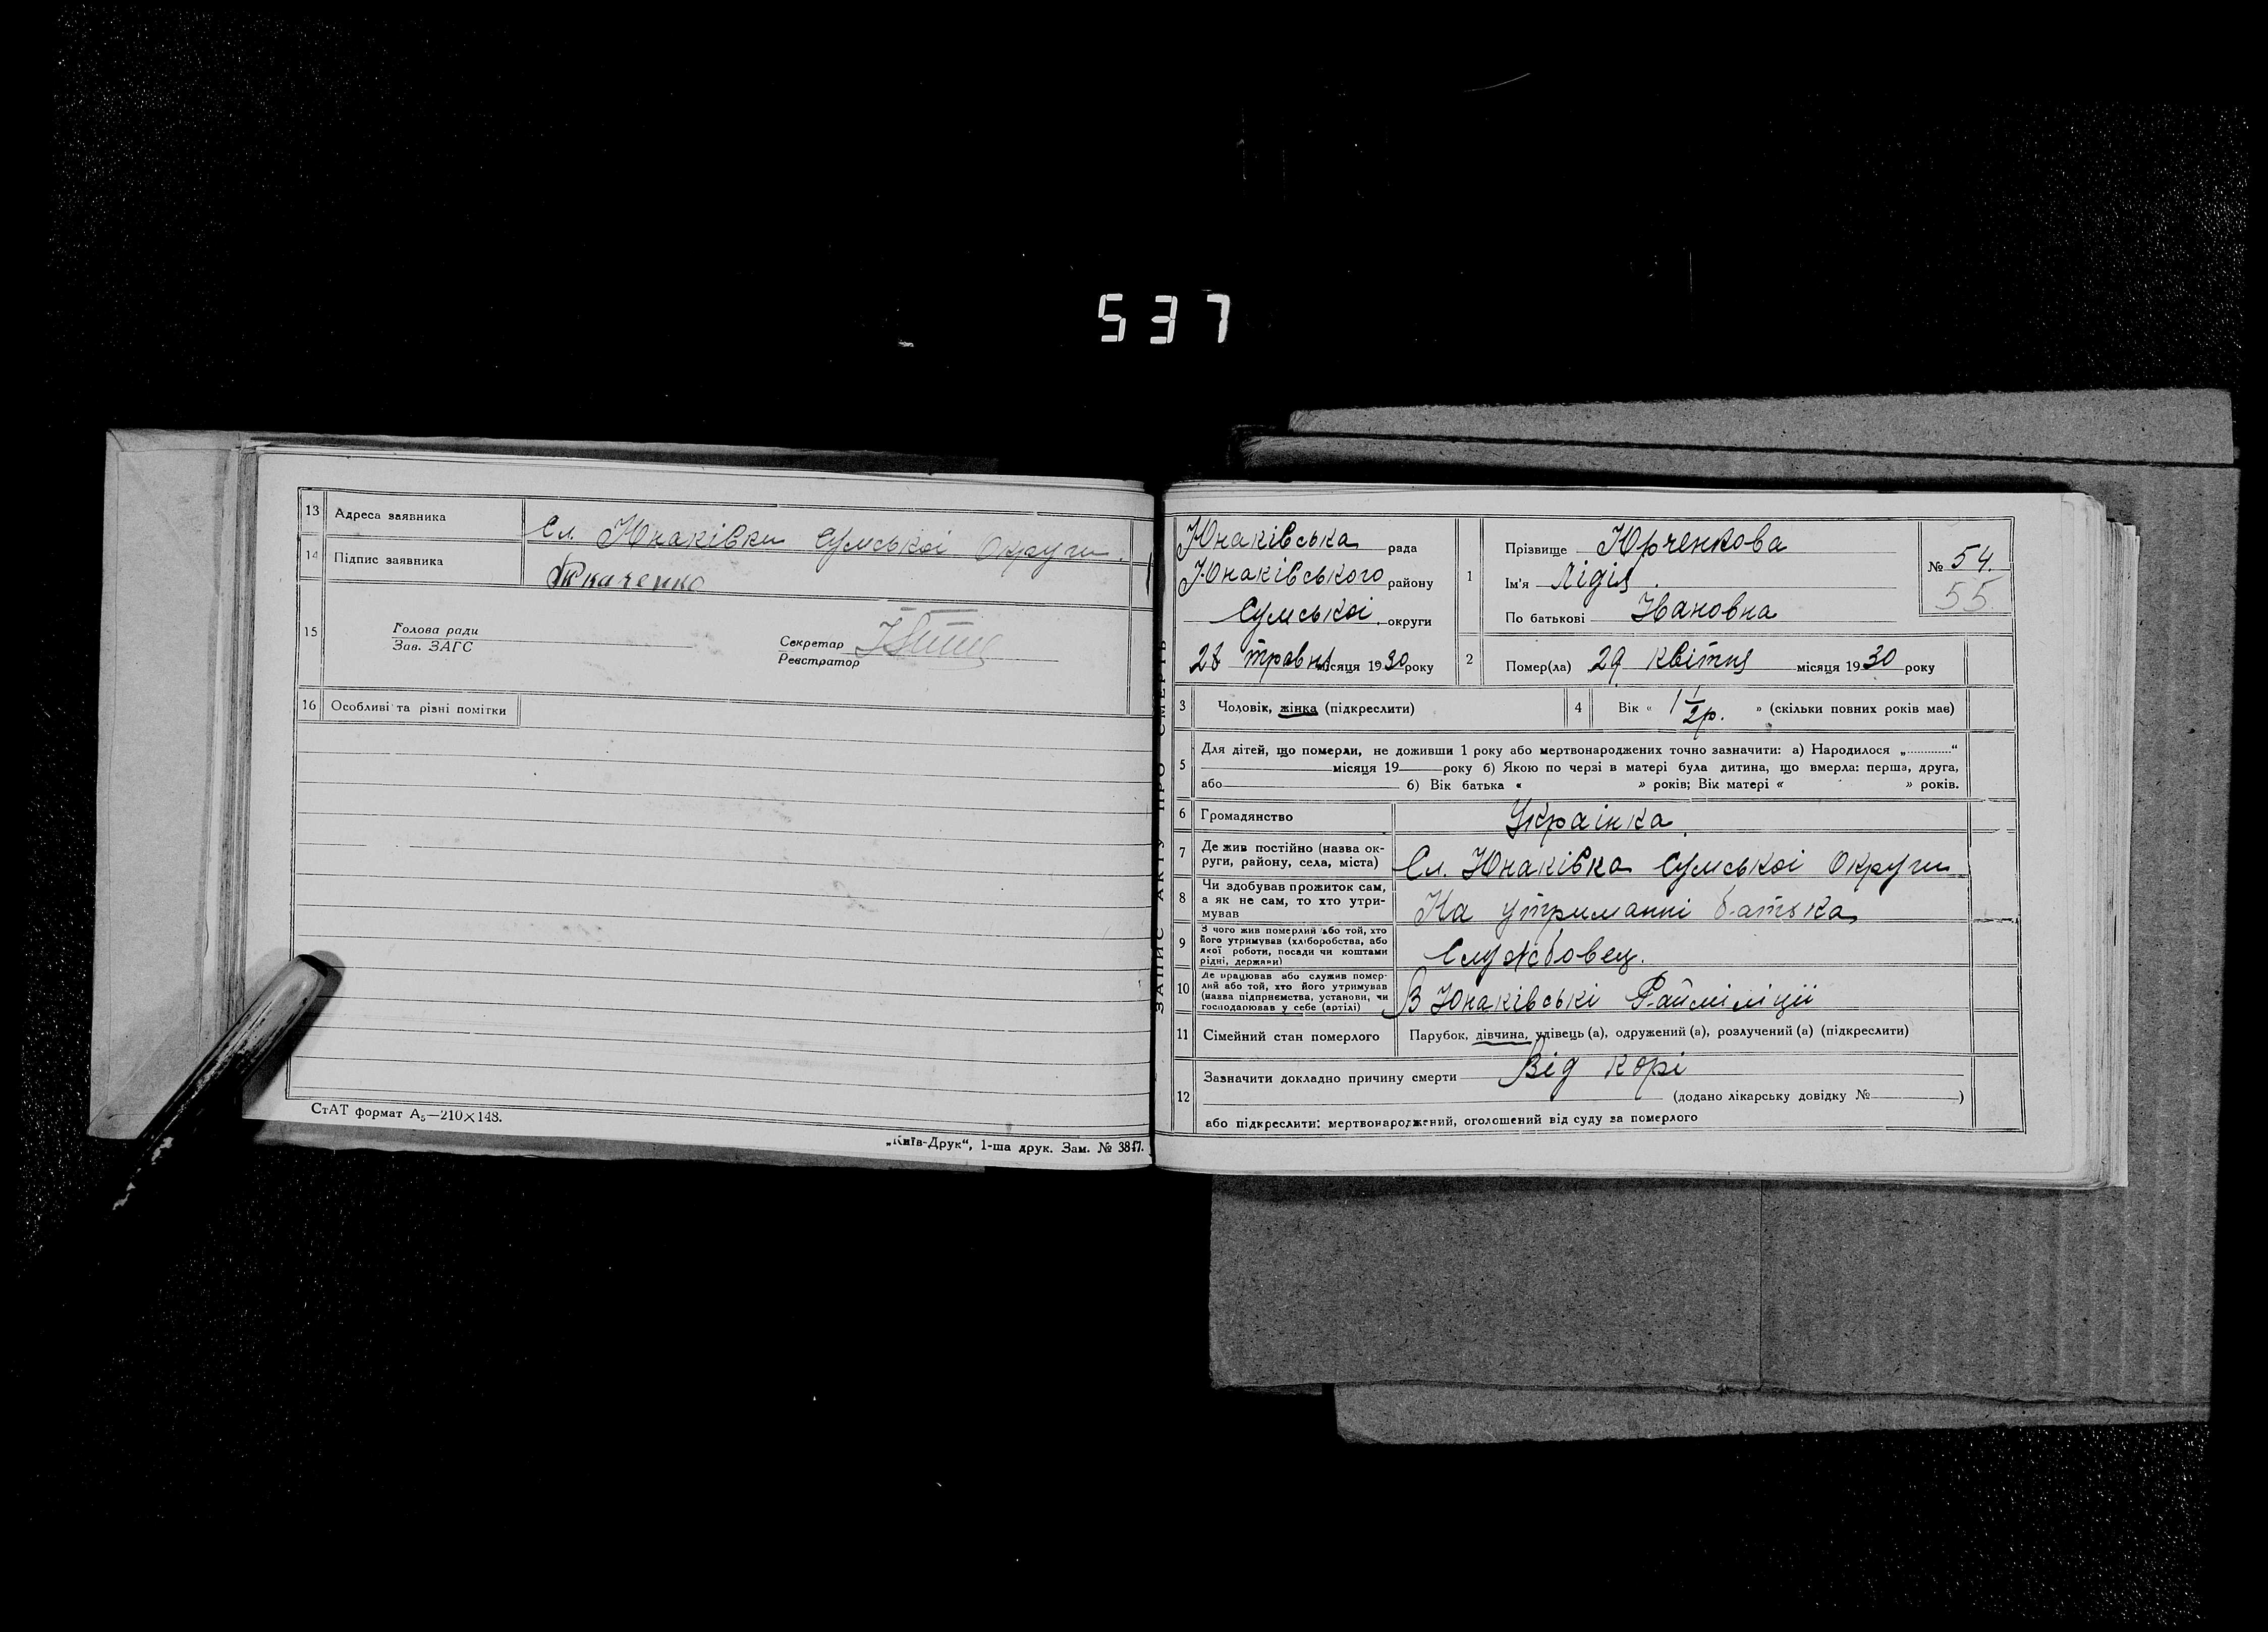 537
13 Адреса заявника Сл. Юнаківки Сумської Округи.
14 Підпис заявника Ткаченко
15 Голова ради
Зав. ЗАГС
Секретар
Реєстратор
16 Особливі та різні помітки
СтАТ формат А5—210×148.
„Київ-Друк“, 1-ша друк. Зам. № 3847.
ЗАПИС АКТУ ПРО СМЕРТЬ
Юнаківська рада
Юнаківського району
Сумської округи
28 травня місяця 1930 року
1 Прізвище Юрченкова
Ім'я Лідія
По батькові Івановна
№ 54.
55
2 Помер(ла) 29 квітня місяця 1930 року
3 Чоловік, жінка (підкреслити)
4 Вік « 1 1/2 р. » (скільки повних років має)
5 Для дітей, що померли, не доживши 1 року або мертвонароджених точно зазначити: а) Народилося „............“
місяця 19 року б) Якою по черзі в матері була дитина, що вмерла: перша, друга,
або б) Вік батька « » років; Вік матері « » років.
6 Громадянство Украінка.
7 Де жив постійно (назва ок-
руги, району, села, міста) Сл. Юнаківка Сумської Округи
8 Чи здобував прожиток сам,
а як не сам, то хто утри-
мував На утриманні батька
9 З чого жив померлий або той, хто
його утримував (хліборобства, або
якої роботи, посади чи коштами
рідні, держави) Службовец.
10 Де працював або служив помер-
лий або той, хто його утримував
(назва підприємства, установи, чи
господарював у себе (артілі) В Юнаківські Райміліції
11 Сімейний стан померлого Парубок, дівчина, удівець (а), одружений (а), розлучений (а) (підкреслити)
12 Зазначити докладно причину смерти Від корі
(додано лікарську довідку № )
або підкреслити: мертвонароджений, оголошений від суду за померлого